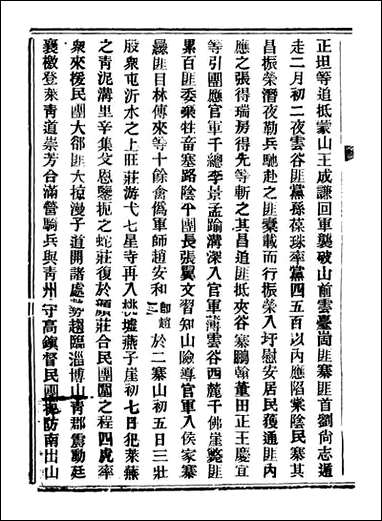 正坦等追抵蒙山王成謙回軍襲破山前雲臺崮匪寨匪首劉尚志遁
走二月初二夜雲谷匪黨孫葆珠率黨四五百以內應陷紫陰民寨其
昌振榮潛夜勒兵馳赴之匪橐載而行振榮入圩慰安居民獲通匪內
應之張得瑞房得先等斬之其昌追匪抵夾谷寨鵬翰董田正王慶宜
等引團應官軍千總李景孟踰溝深入官軍薄雲谷西麓千佛崖斃匪
累百匪委棄牲畜塞路陰平團長張翼文習知山險導官軍入侯家寨
縣匪目林傳來等十餘禽僞軍師趙安和卽趙三於二寨山初五日三壯
股衆屯沂水之上旺莊游弋七星寺再入桃墟燕子崖初七日犯萊蕪
之青泥溝里辛集文恩鏖扼之蛇莊復於顏莊合民團圍之程四虎率
衆來援民團大郤匪大掠漫子道開諸處勢趨臨淄博山青郡震動廷
襄檄登萊青道崇芳台滿營騎兵與靑州守高鎮督民團扼防南出山